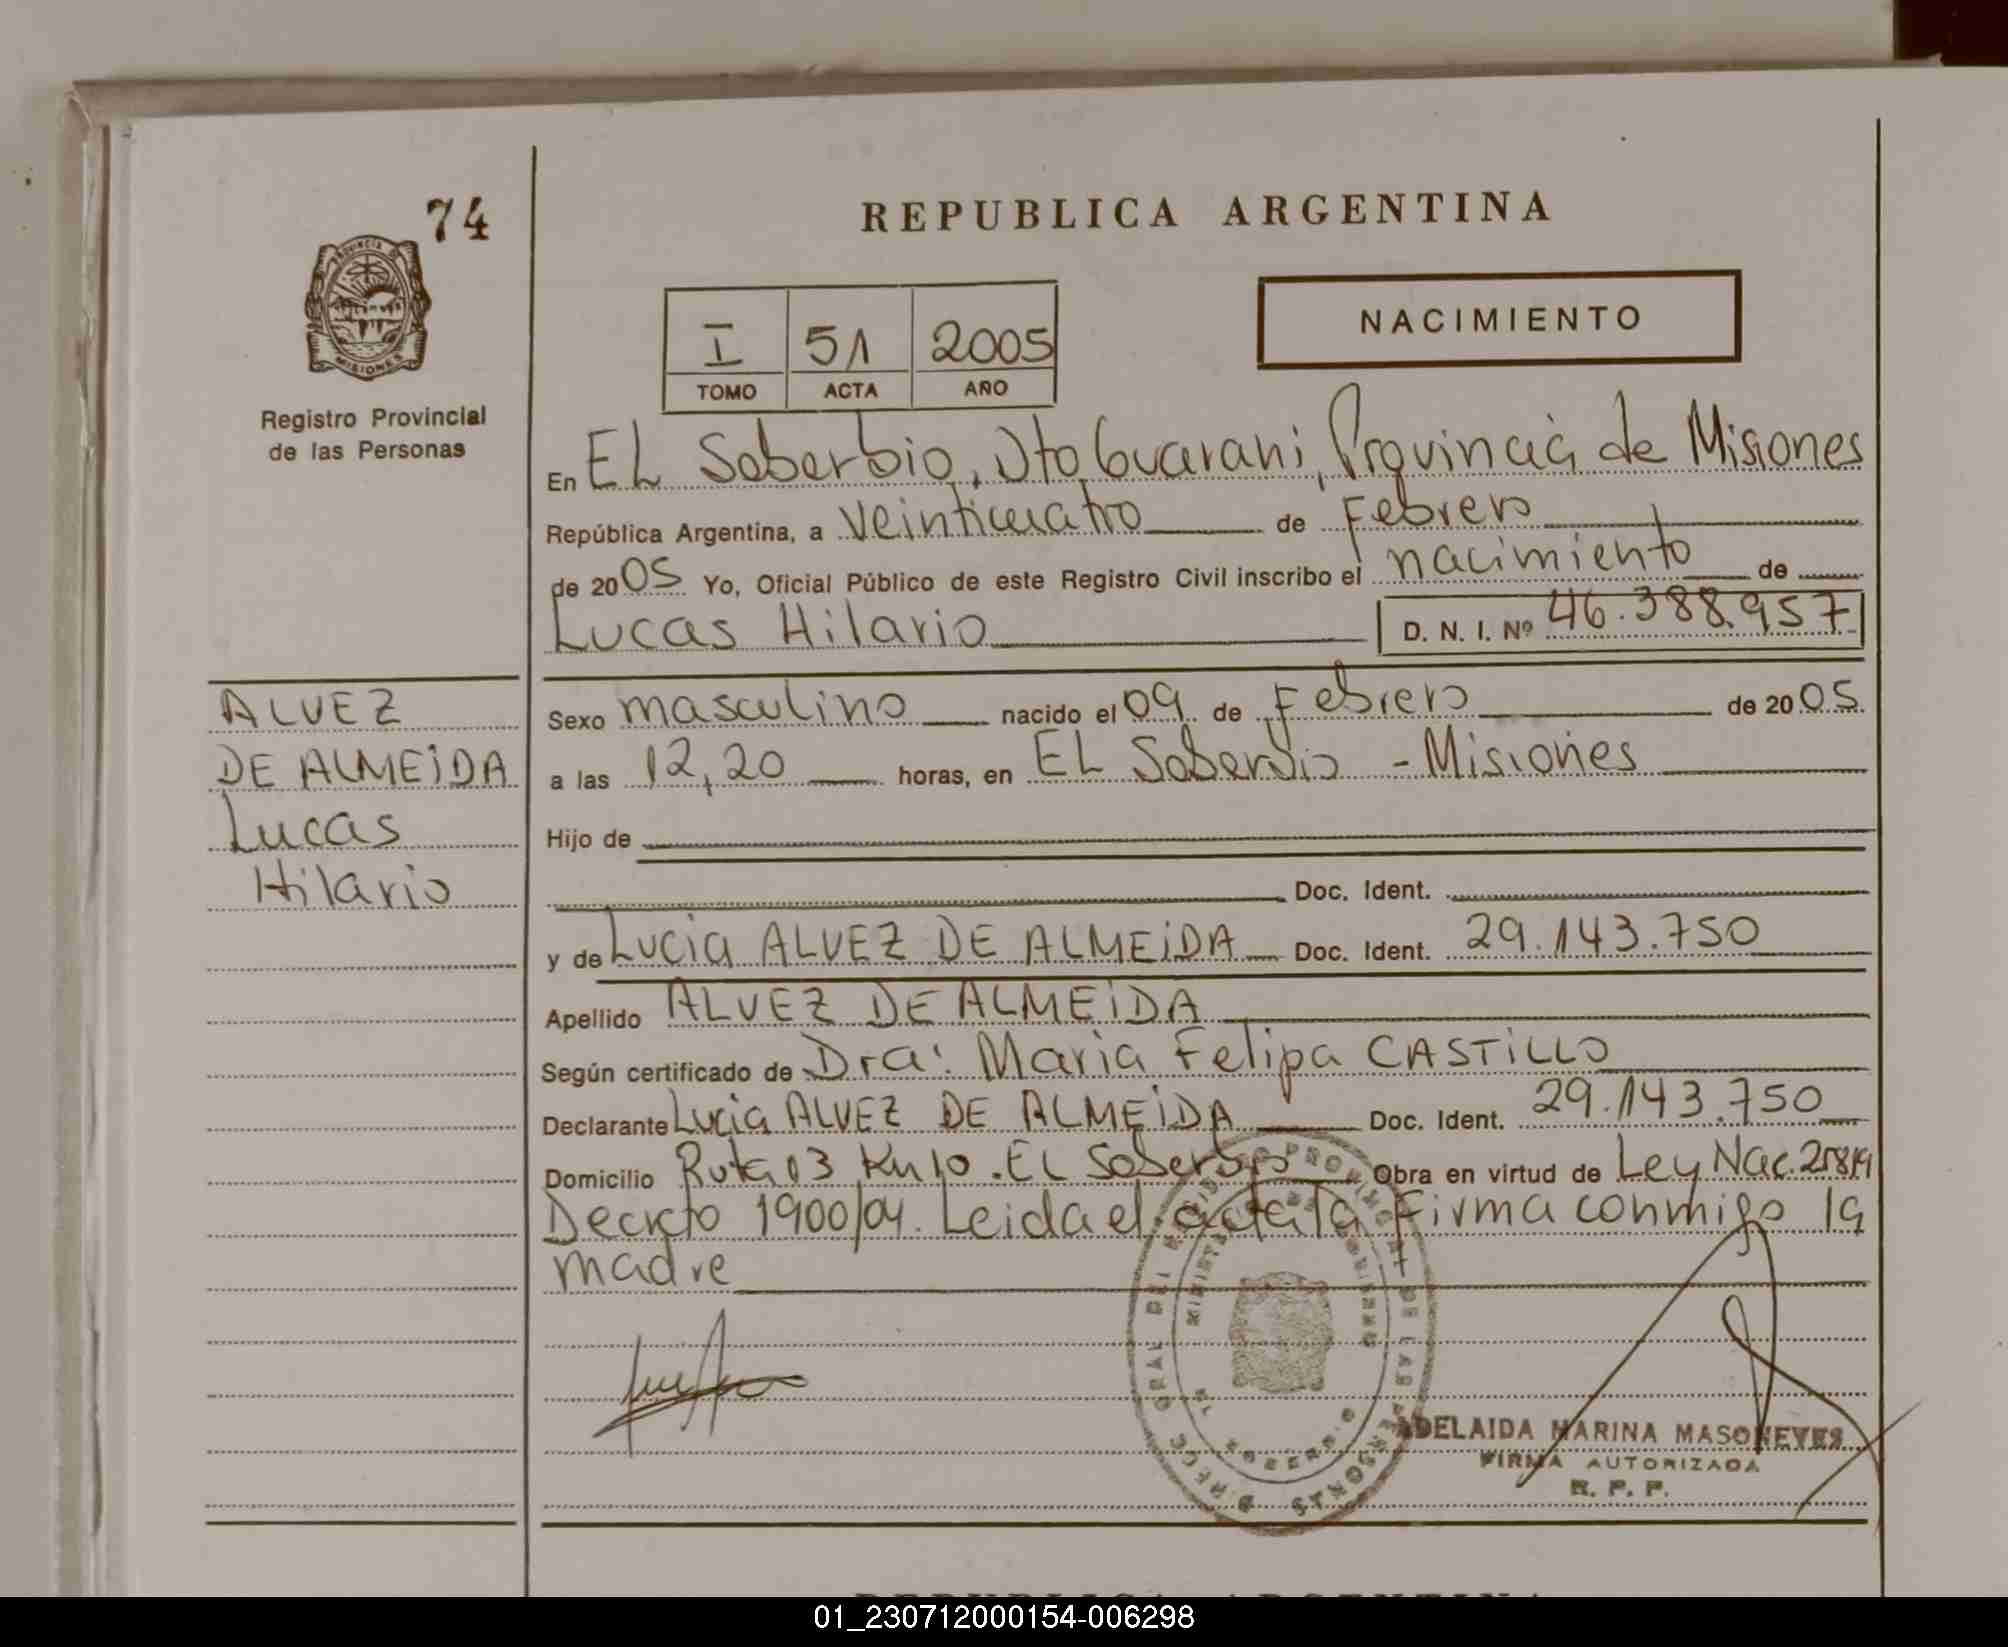 74
PROVINCIA DE
MISIONES
Registro Provincial
de las Personas
REPUBLICA ARGENTINA
I 51 2005
TOMO ACTA AÑO
NACIMIENTO
En EL Soberbio, Dto Guarani, Provincia de Misiones
República Argentina, a veinticuatro de Febrero
de 2005 Yo, Oficial Público de este Registro Civil inscribo el nacimiento de
Lucas Hilario D. N. I. Nº 46.388.957
ALVEZ
DE ALMEIDA
Lucas
Hilario
Sexo masculino nacido el 09 de Febrero de 2005
a las 12,20 horas, en EL Soberbio - Misiones
Hijo de
Doc. Ident.
y de Lucia ALVEZ DE ALMEIDA Doc. Ident. 29.143.750
Apellido ALVEZ DE ALMEIDA
Según certificado de Dra: Maria Felipa CASTILLO
Declarante Lucia ALVEZ DE ALMEIDA Doc. Ident. 29.143.750
Domicilio Ruta 03 Km 10. EL Soberbio Obra en virtud de Ley Nac. 25819
Decreto 1900/04. Leida el acta la firma conmigo la
madre
ADELAIDA MARINA MASONEVES
FIRMA AUTORIZADA
R. P. P.
REPUBLICA ARGENTINA
01_230712000154-006298